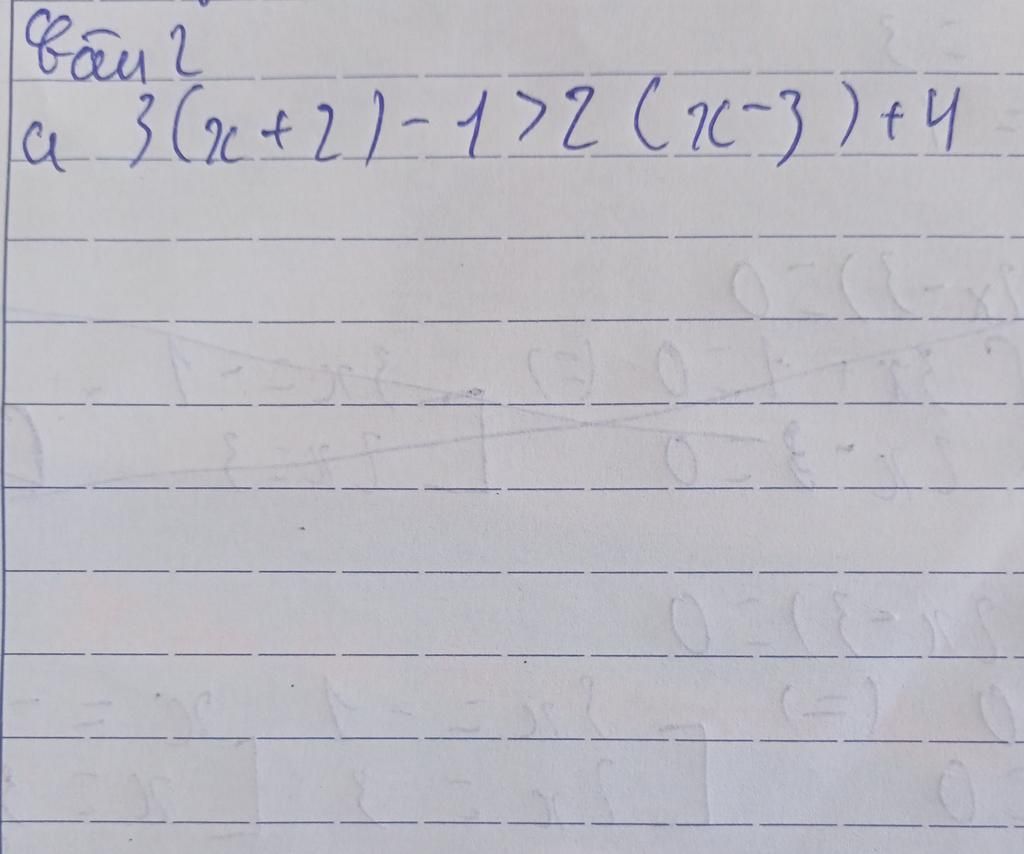 Bài 2
a 3(x+2)-1>2(x-3)+4